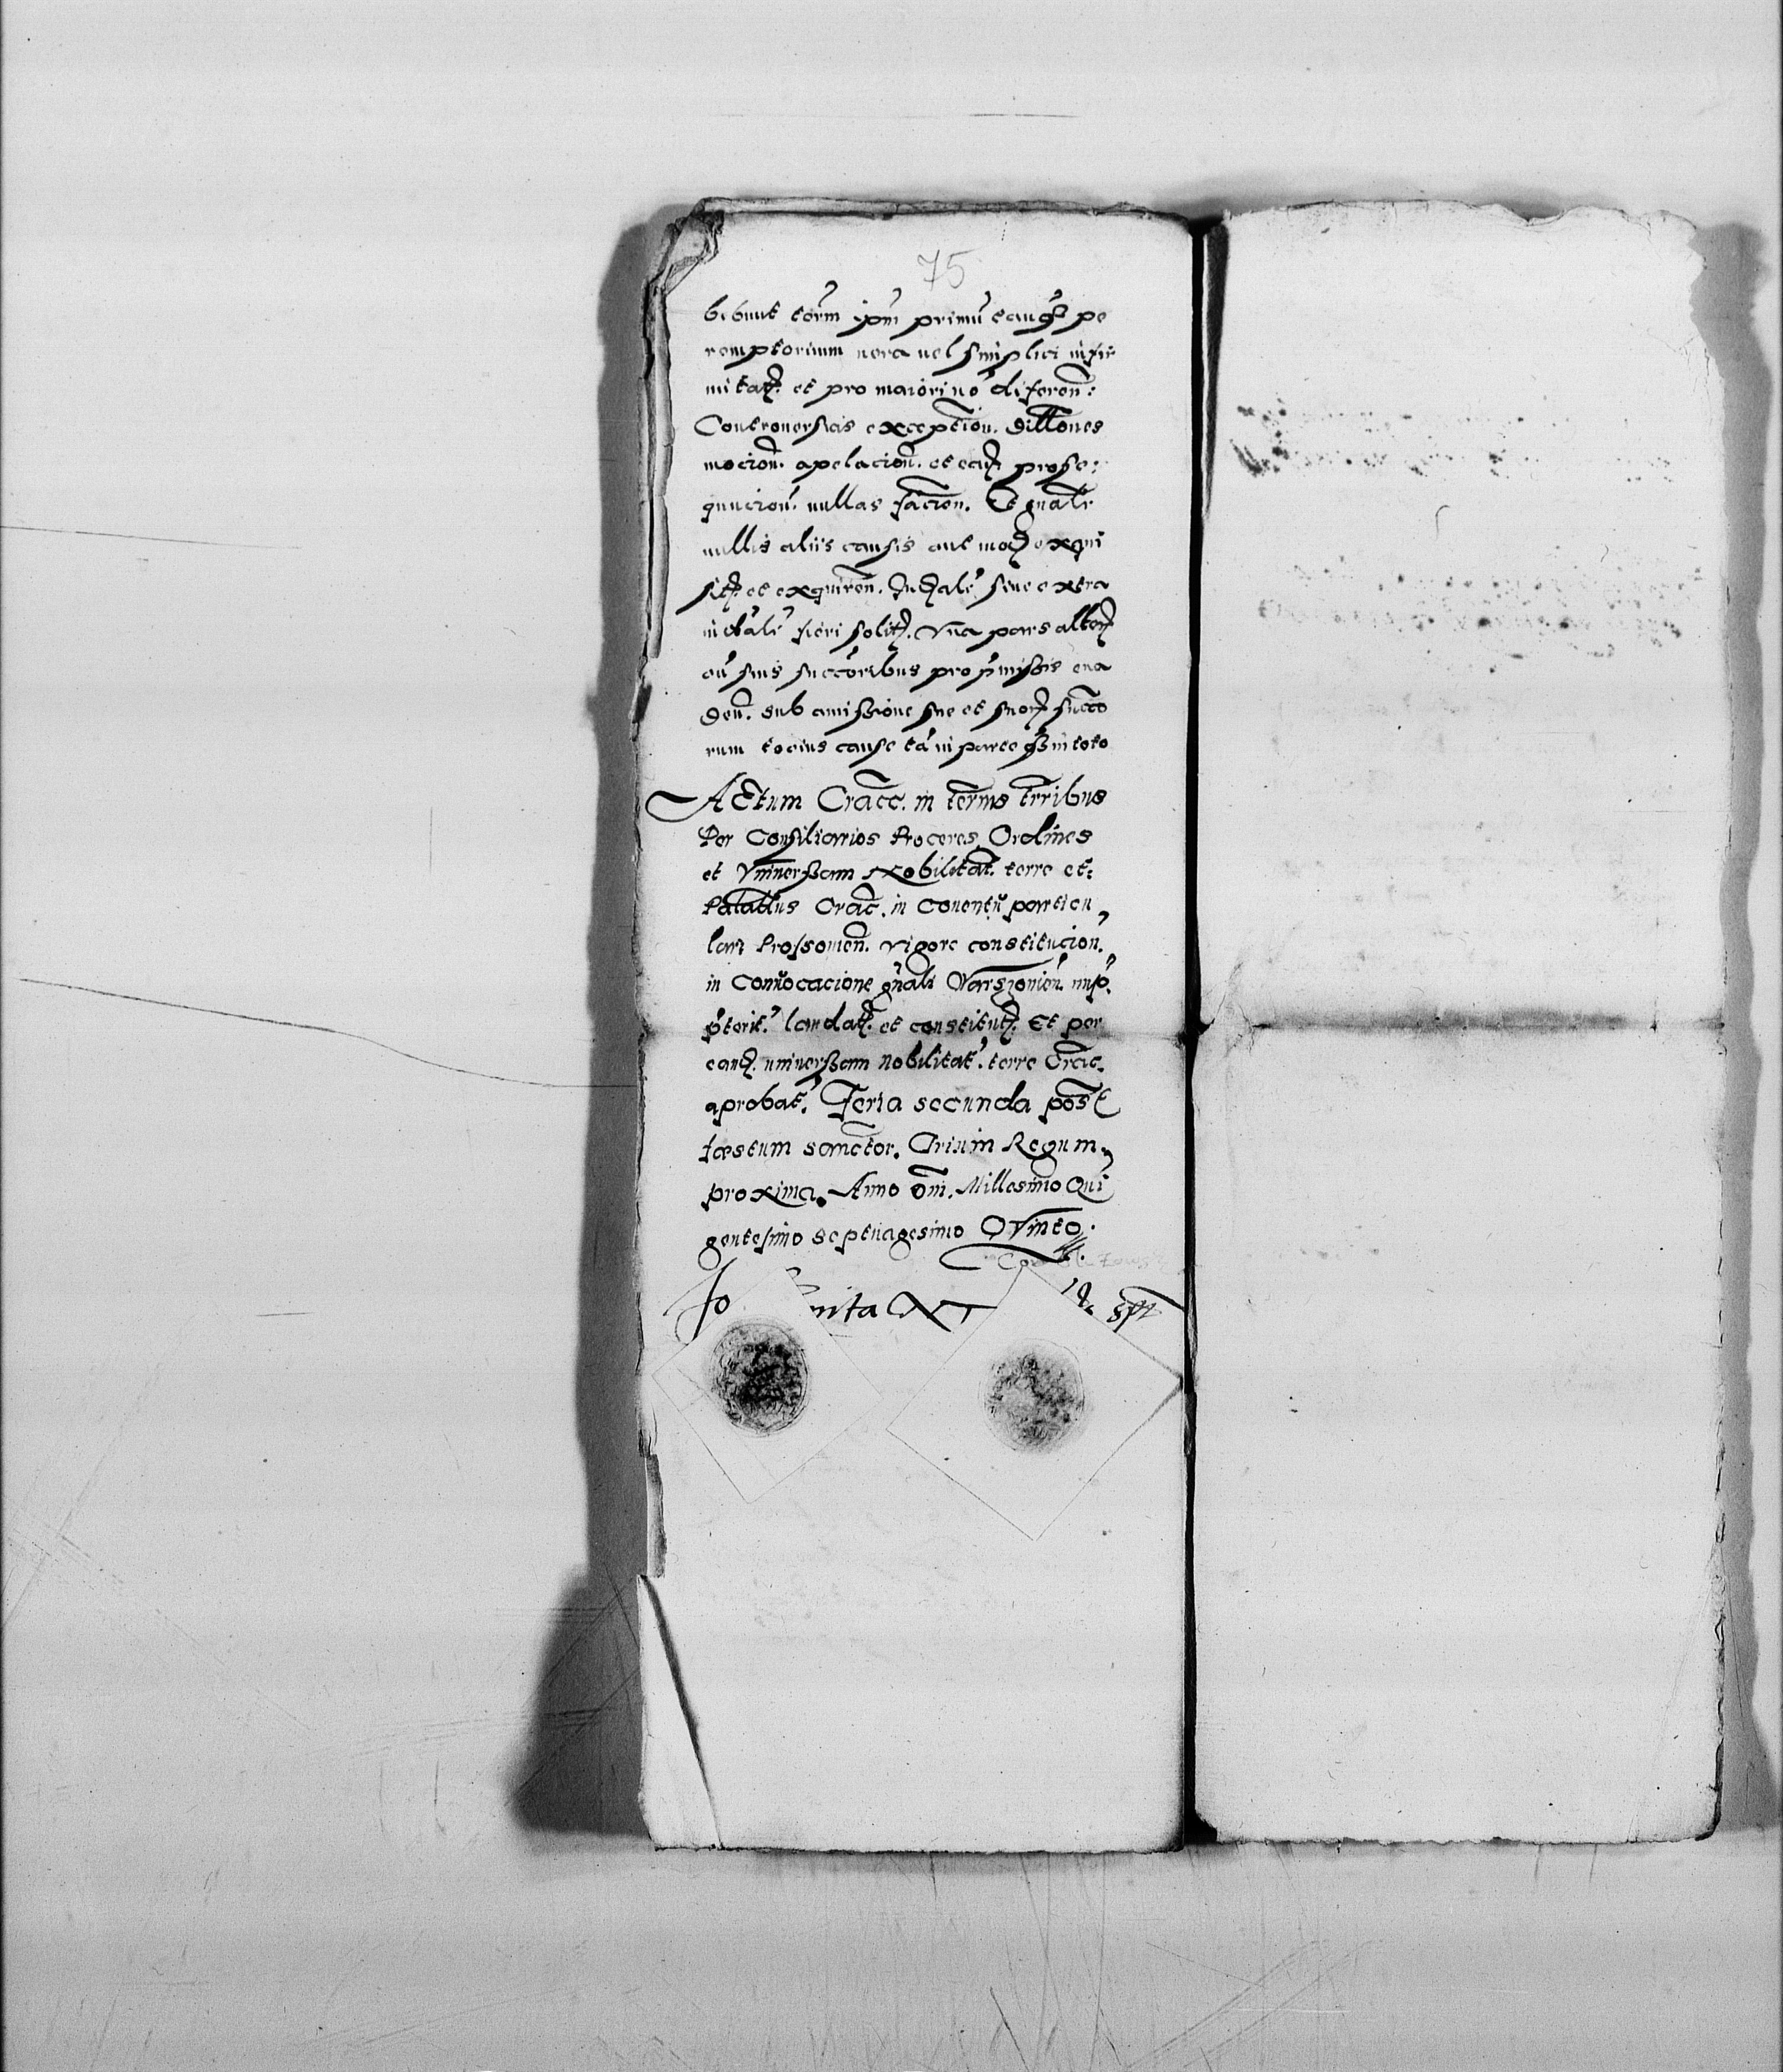 75
bebunt term ipm primu tanqz pe
remptorium vera vel simplici infir
mitatz. et pro maiori no' diferen:
Controversiis exception. dillones
mocion. apelacion. et earz prose:
quucion. nullas facien. Et gnale
nullis aliis causis aut modz exqui
sitz. et exquiren. Judzale' sive extra
iudzale' fieri solitz. Una pars alterz
cu' suis succoribus pro pmissis eva
den. sub amissione sue et suorz succo
rum tocius cause ta' in parte qz in toto
Actum Cracc. in termis terribus
Per Consiliarios Proceres, Ordines
et Universam Nobilitat. terre et:
Palattus Crac. in Conentu particu,
lari Prossovien. vigore constitucion.
in Convocacione gnali Warszovien. nup.
pterit. laudatz. et constitutz. Et per
eandz. universam nobilitat. terre Crac.
aprobat. Feria secunda post
fæstum sanctor. Trium Regum
proxima. Anno Dni. Millesimo Qui
gentesimo septuagesimo QVinto.
Jo nita